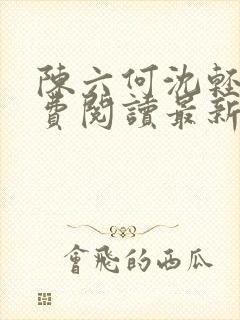 陳六何沈輕
費閱讀最新
會飛的西瓜